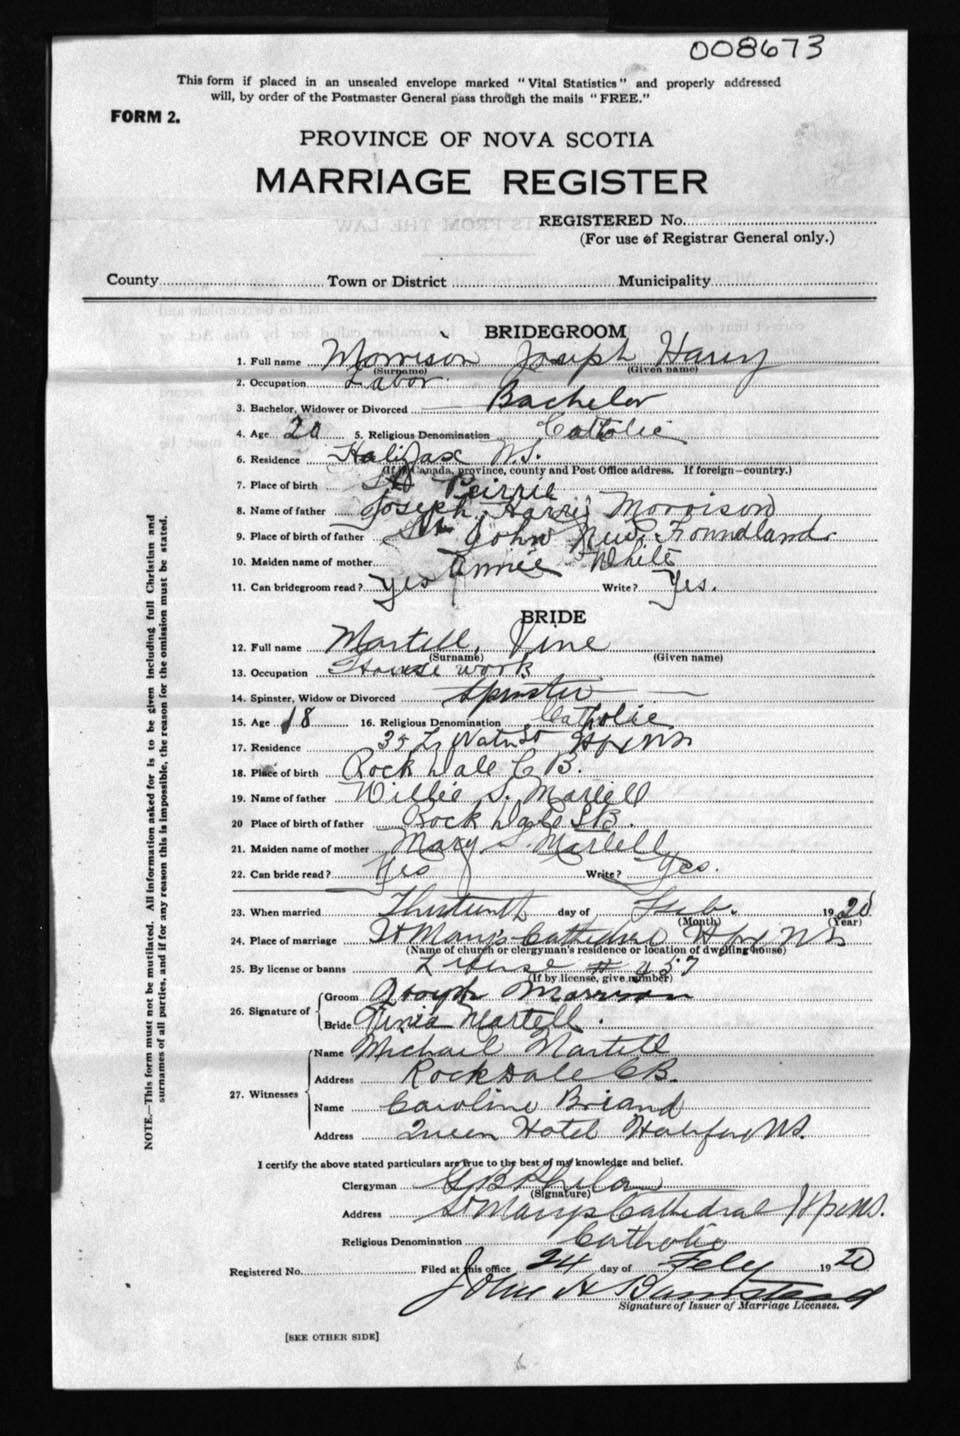 008673
This form if placed in an unsealed envelope marked "Vital Statistics" and properly addressed
will, by order of the Postmaster General pass through the mails "FREE."
FORM 2.
PROVINCE OF NOVA SCOTIA
MARRIAGE REGISTER
REGISTERED No.
(For use of Registrar General only.)
County Town or District Municipality
BRIDEGROOM
1. Full name Morrison Joseph Harry
(Surname) (Given name)
2. Occupation Labor
3. Bachelor, Widower or Divorced Bachelor
4. Age 20 5. Religious Denomination Catholic
6. Residence Halifax N.S.
(If in Canada, province, county and Post Office address. If foreign—country.)
7. Place of birth St Peirrie
8. Name of father Joseph Harry Morrison
9. Place of father St John New Foundland
10. Maiden name of mother Annie White
11. Can bridegroom read? yes Write? Yes.
BRIDE
12. Full name Martell, Vine
(Surname) (Given name)
13. Occupation House work
14. Spinster, Widow or Divorced Spinster
15. Age 18 16. Religious Denomination Catholic
17. Residence 35 Water St Hfx NS
18. Place of birth Rock Dale C B.
19. Name of father Willie S. Martell
20 Place of father Rock Dale C.B.
21. Maiden name of mother Mary S. Martell
22. Can bride read? Yes Write? Yes.
23. When married Thirteenth day of Feb. 1920
(Month) (Year)
24. Place of marriage St Mary's Cathedral Hfx NS
(Name of church or clergyman's residence or location of dwelling house)
25. By license or banns License # 457
(If by license, give number)
26. Signature of
Groom Joseph Morrison
Bride Vinia Martell.
27. Witnesses
Name Michael Martell
Address Rock Dale CB.
Name Caroline Briand
Address Queen Hotel Halifax NS.
I certify the above stated particulars are true to the best of my knowledge and belief.
Clergyman G B
(Signature)
Address St Marys Cathedral Hfx NS.
Religious Denomination Catholic
Registered No. Filed at this office 24 day of Feby 1920
John A
Signature of Issuer of Marriage Licenses.
[SEE OTHER SIDE]
NOTE.—This form must not be mutilated. All information asked for is to be given including full Christian and
surnames of all parties, and if for any reason this is impossible, the reason for the omission must be stated.